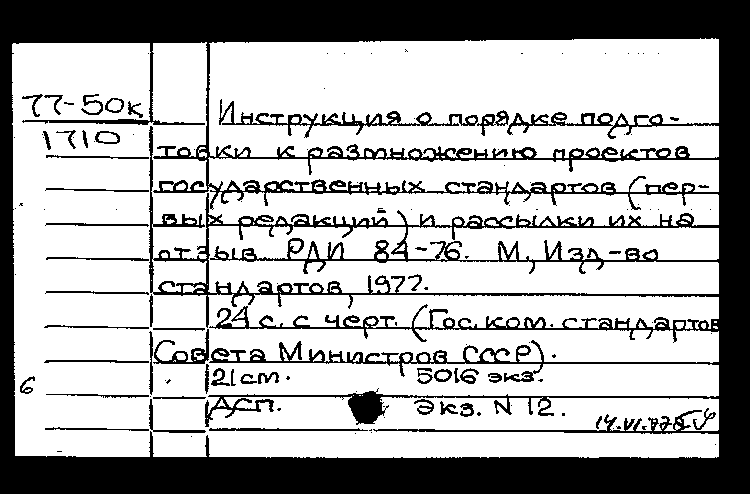 77-50к
1710
Инструкция о порядке подго-
товки к размножению проектов
государственных стандартов (пер-
вых редакций) и рассылки их на
отзыв РДИ 84-76. М., Изд-во
стандартов, 1977.
24 с. с черт. (Гос. ком. стандартов
Совета Министров СССР).
21 см. 5016 экз.
6
ДСП. экз. N 12.
14.VI.77